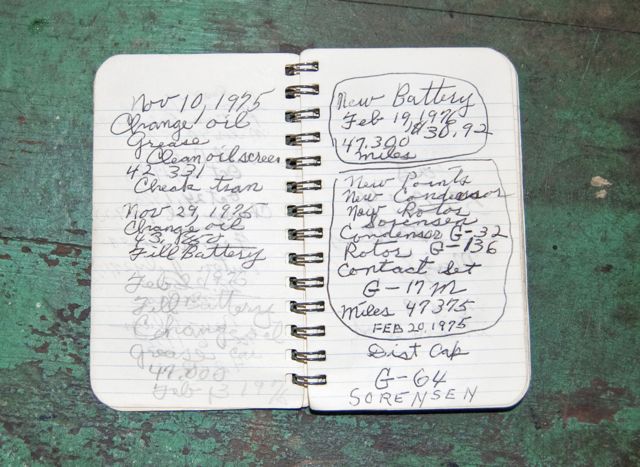 Nov 10, 1975
Change oil
Grease
Clean oil screen
42 331
Cheak tran
Nov 29, 1975
Change oil
Fill Battery
Fill Battery
Change oil
Grease car
47,000
Feb 3 1976
New Battery
Feb 19, 1976
$30.92
47,300
miles
New Points
New Condensor
New Rotos
Sorensen
Condensor G-32
Rotos G-136
Contact Set
G-17M
Miles 47375
FEB 20, 1975
Dist Cap
G-64
SORENSEN